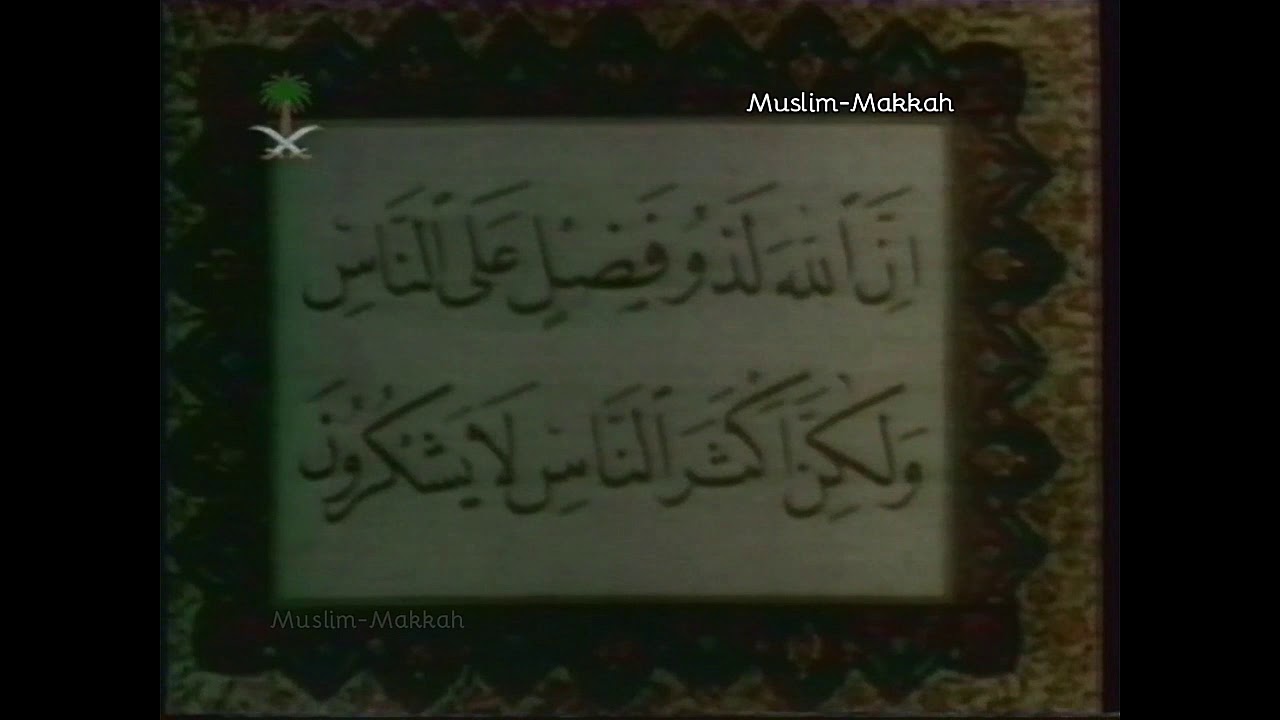 Muslim-Makkah
إِنَّ ٱللَّهَ لَذُو فَضْلٍ عَلَى ٱلنَّاسِ
وَلَٰكِنَّ أَكْثَرَ ٱلنَّاسِ لَا يَشْكُرُونَ
Muslim-Makkah